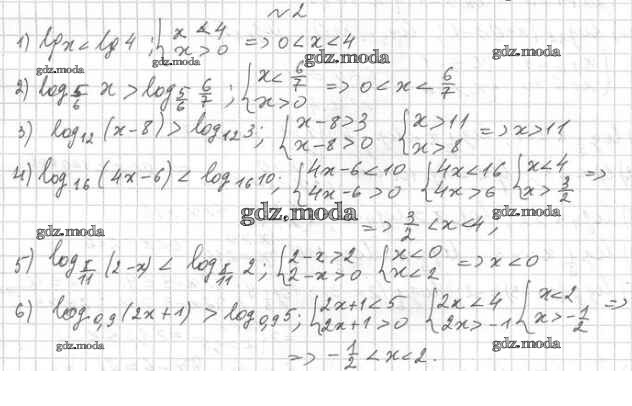 №2
1) lg x < lg 4 ; { x < 4 x > 0 => 0 < x < 4
gdz.moda gdz.moda gdz.moda
2) log 5/6 x > log 5/6 6/7 ; { x < 6/7 x > 0 => 0 < x < 6/7
3) log₁₂(x-8) > log₁₂3; { x-8>3 x-8>0 { x>11 x>8 => x>11
4) log₁₆(4x-6) < log₁₆10; { 4x-6<10 4x-6>0 { 4x<16 4x>6 { x<4 x>3/2 =>
gdz.moda gdz.moda
=> 3/2 < x < 4;
gdz.moda
5) log π/11 (2-x) < log π/11 2; { 2-x>2 2-x>0 { x<0 x<2 => x<0
6) log₀,₉(2x+1) > log₀,₉5; { 2x+1<5 2x+1>0 { 2x<4 2x>-1 { x<2 x>-1/2 =>
gdz.moda gdz.moda
=> -1/2 < x < 2.